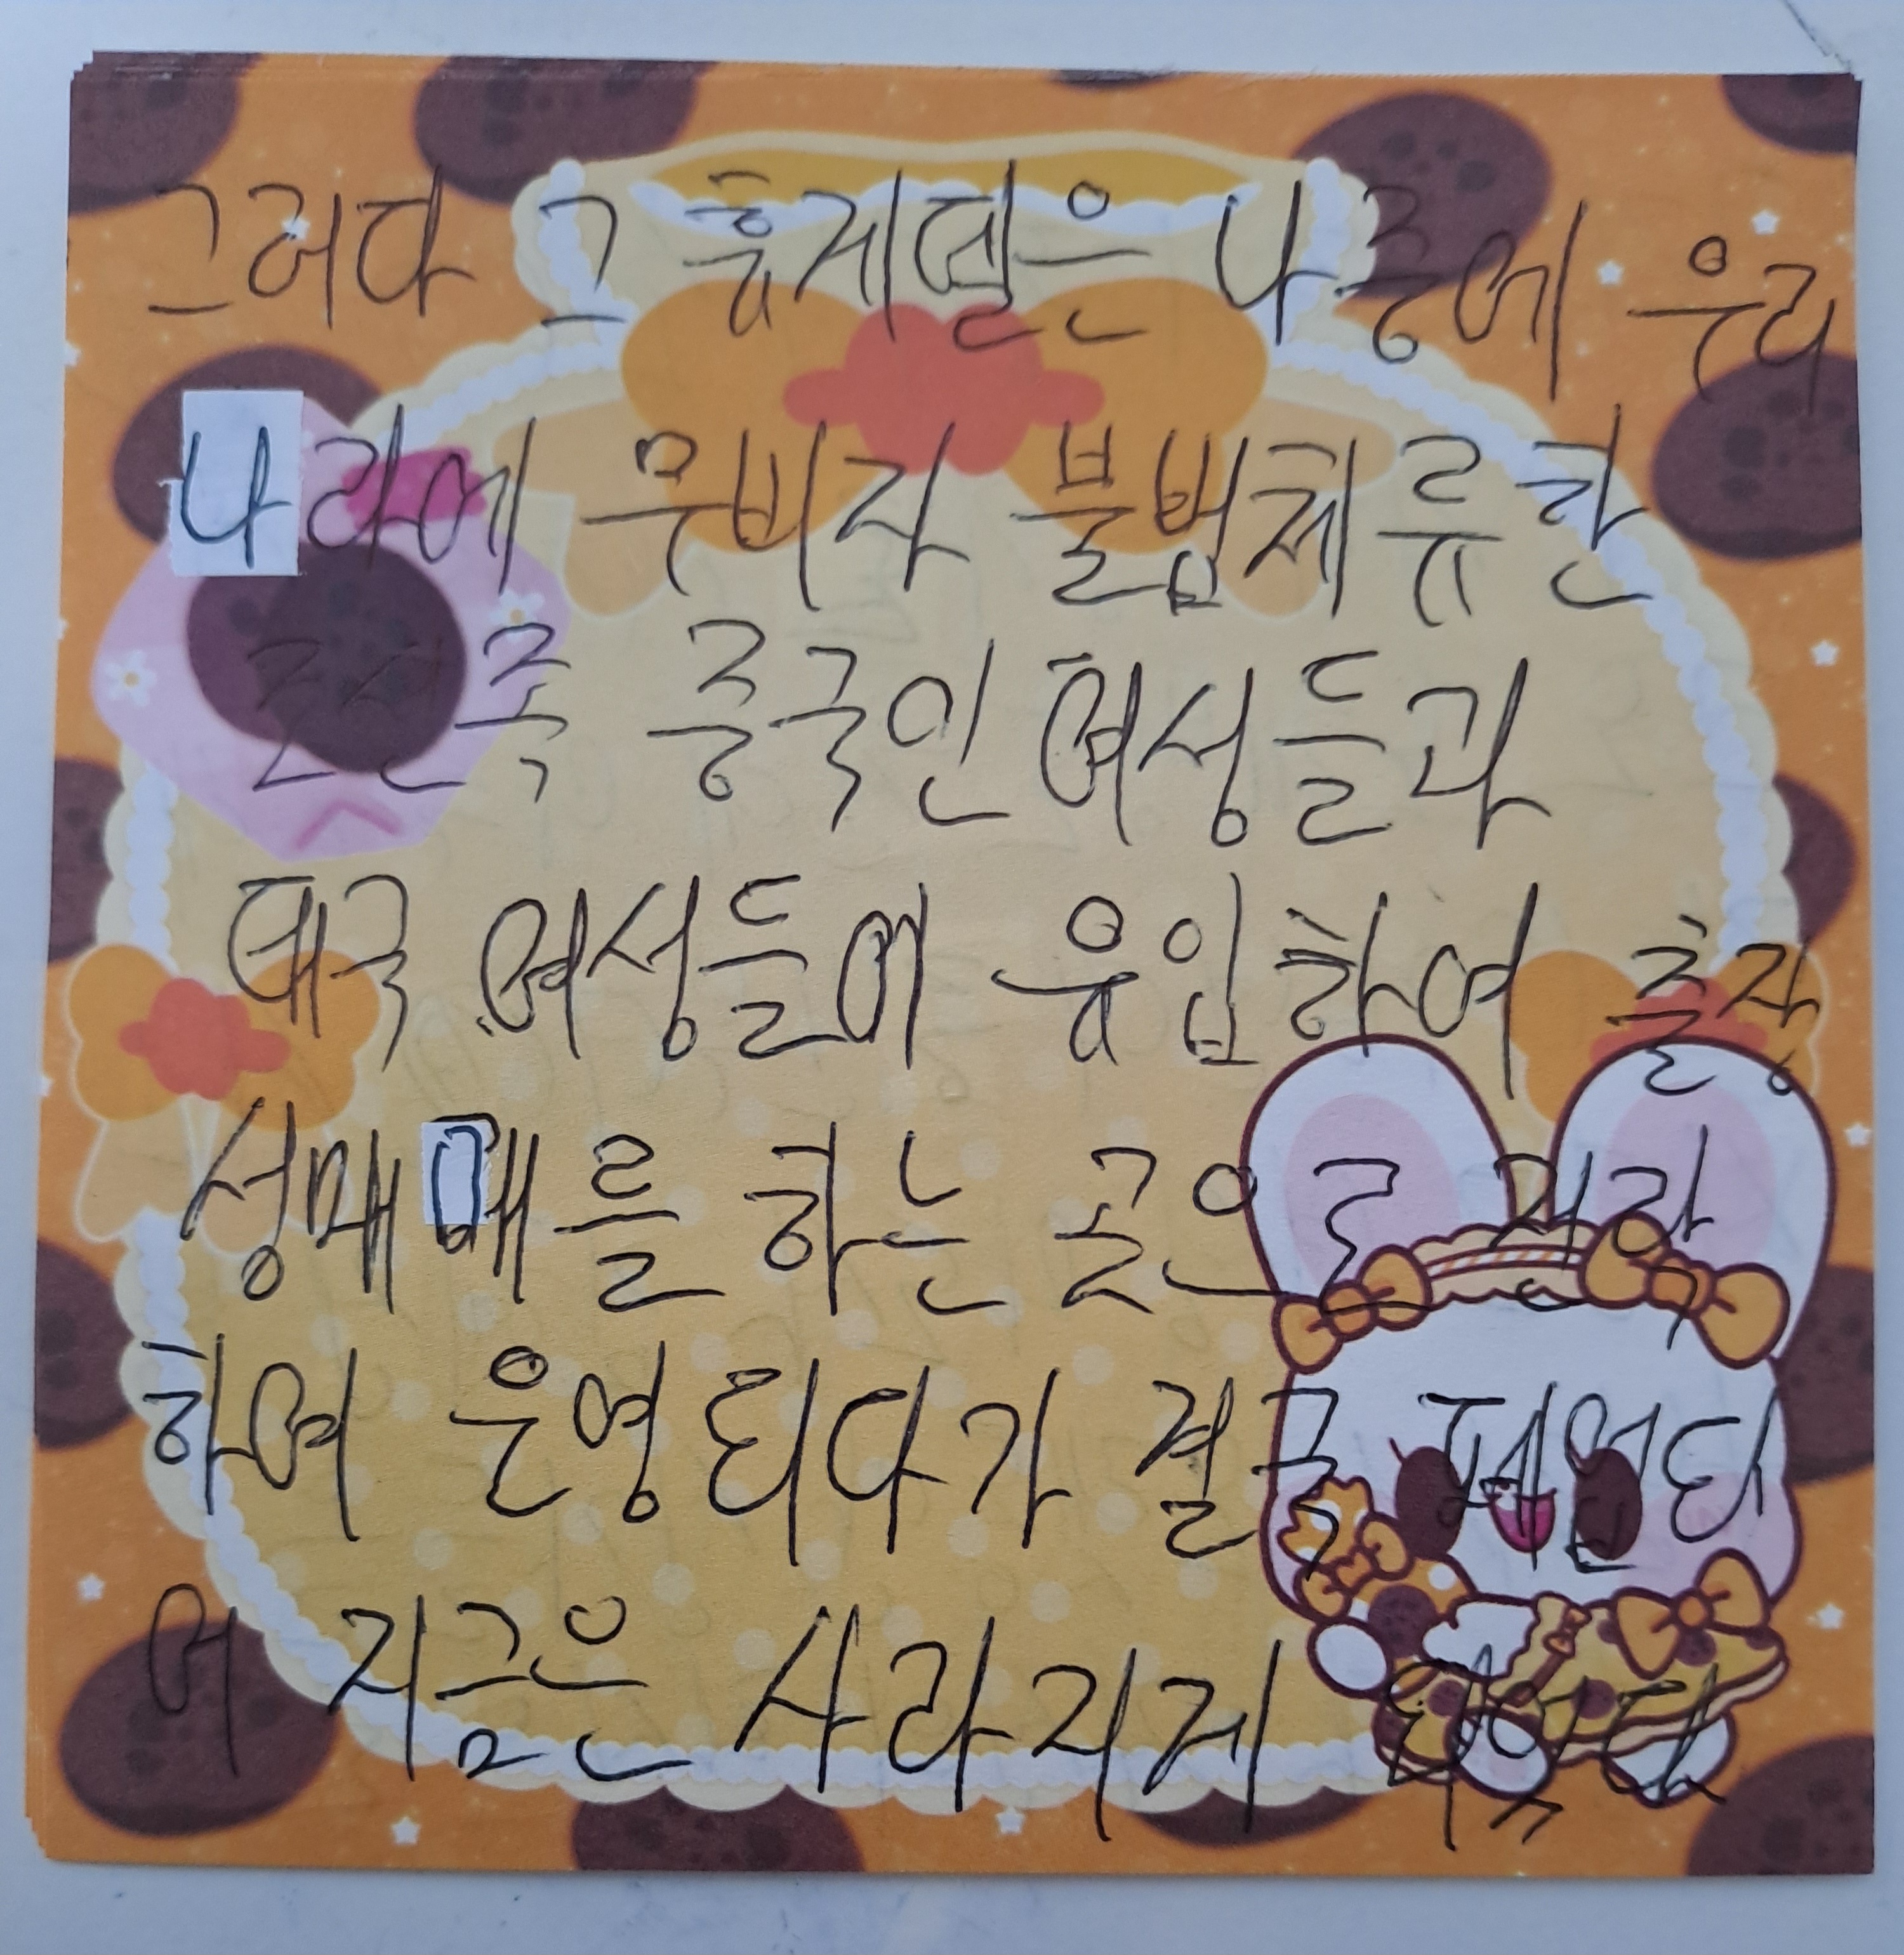 그러다 그 휴게텔은 나중에 우리
나라에 무비자 불법체류한
조선족 중국인 여성들과
태국 여성들이 유입하여 출장
성매매를 하는 곳으로 전락
하여 운영되다가 결국 폐업되
어 지금은 사라지게 되었다